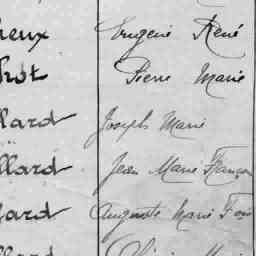 heux Eugène René
hot Pierre Marie
lard Joseph Marie
llard Jean Marie François
fard Auguste Marie
llard Marie